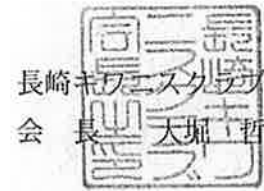 長崎キワニスクラブ
会長 大堀 哲